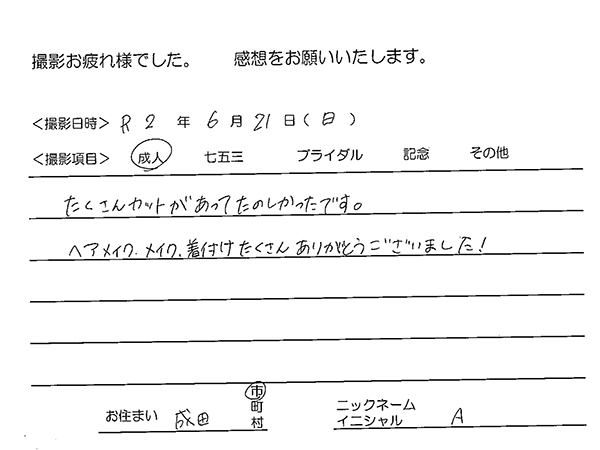 撮影お疲れ様でした。 感想をお願いいたします。
＜撮影日時＞ R 2 年 6 月 21 日 (日)
＜撮影項目＞ 成人 七五三 ブライダル 記念 その他
たくさんカットがあってたのしかったです。
ヘアメイク、メイク、着付けたくさんありがとうございました!
お住まい 成田 市 町 村
ニックネーム
イニシャル A